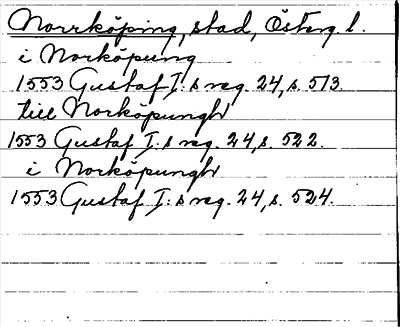 Norrköping, stad, Österg. l.
i Norköpung
1553 Gustaf I:s reg. 24, s. 513.
till Norköpungh
1553 Gustaf I:s reg. 24, s. 522.
i Norköpungh
1553 Gustaf I:s reg. 24, s. 524.